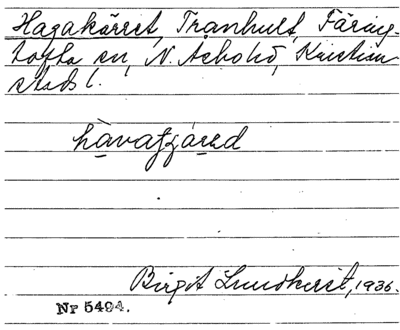 Hagakärret, Tranhult, Färing-
tofta sn, N. Åsbo hd, Kristian-
stads l.
hàvatjáred
Birgit Lundkvist, 1936.
Nr 5494.